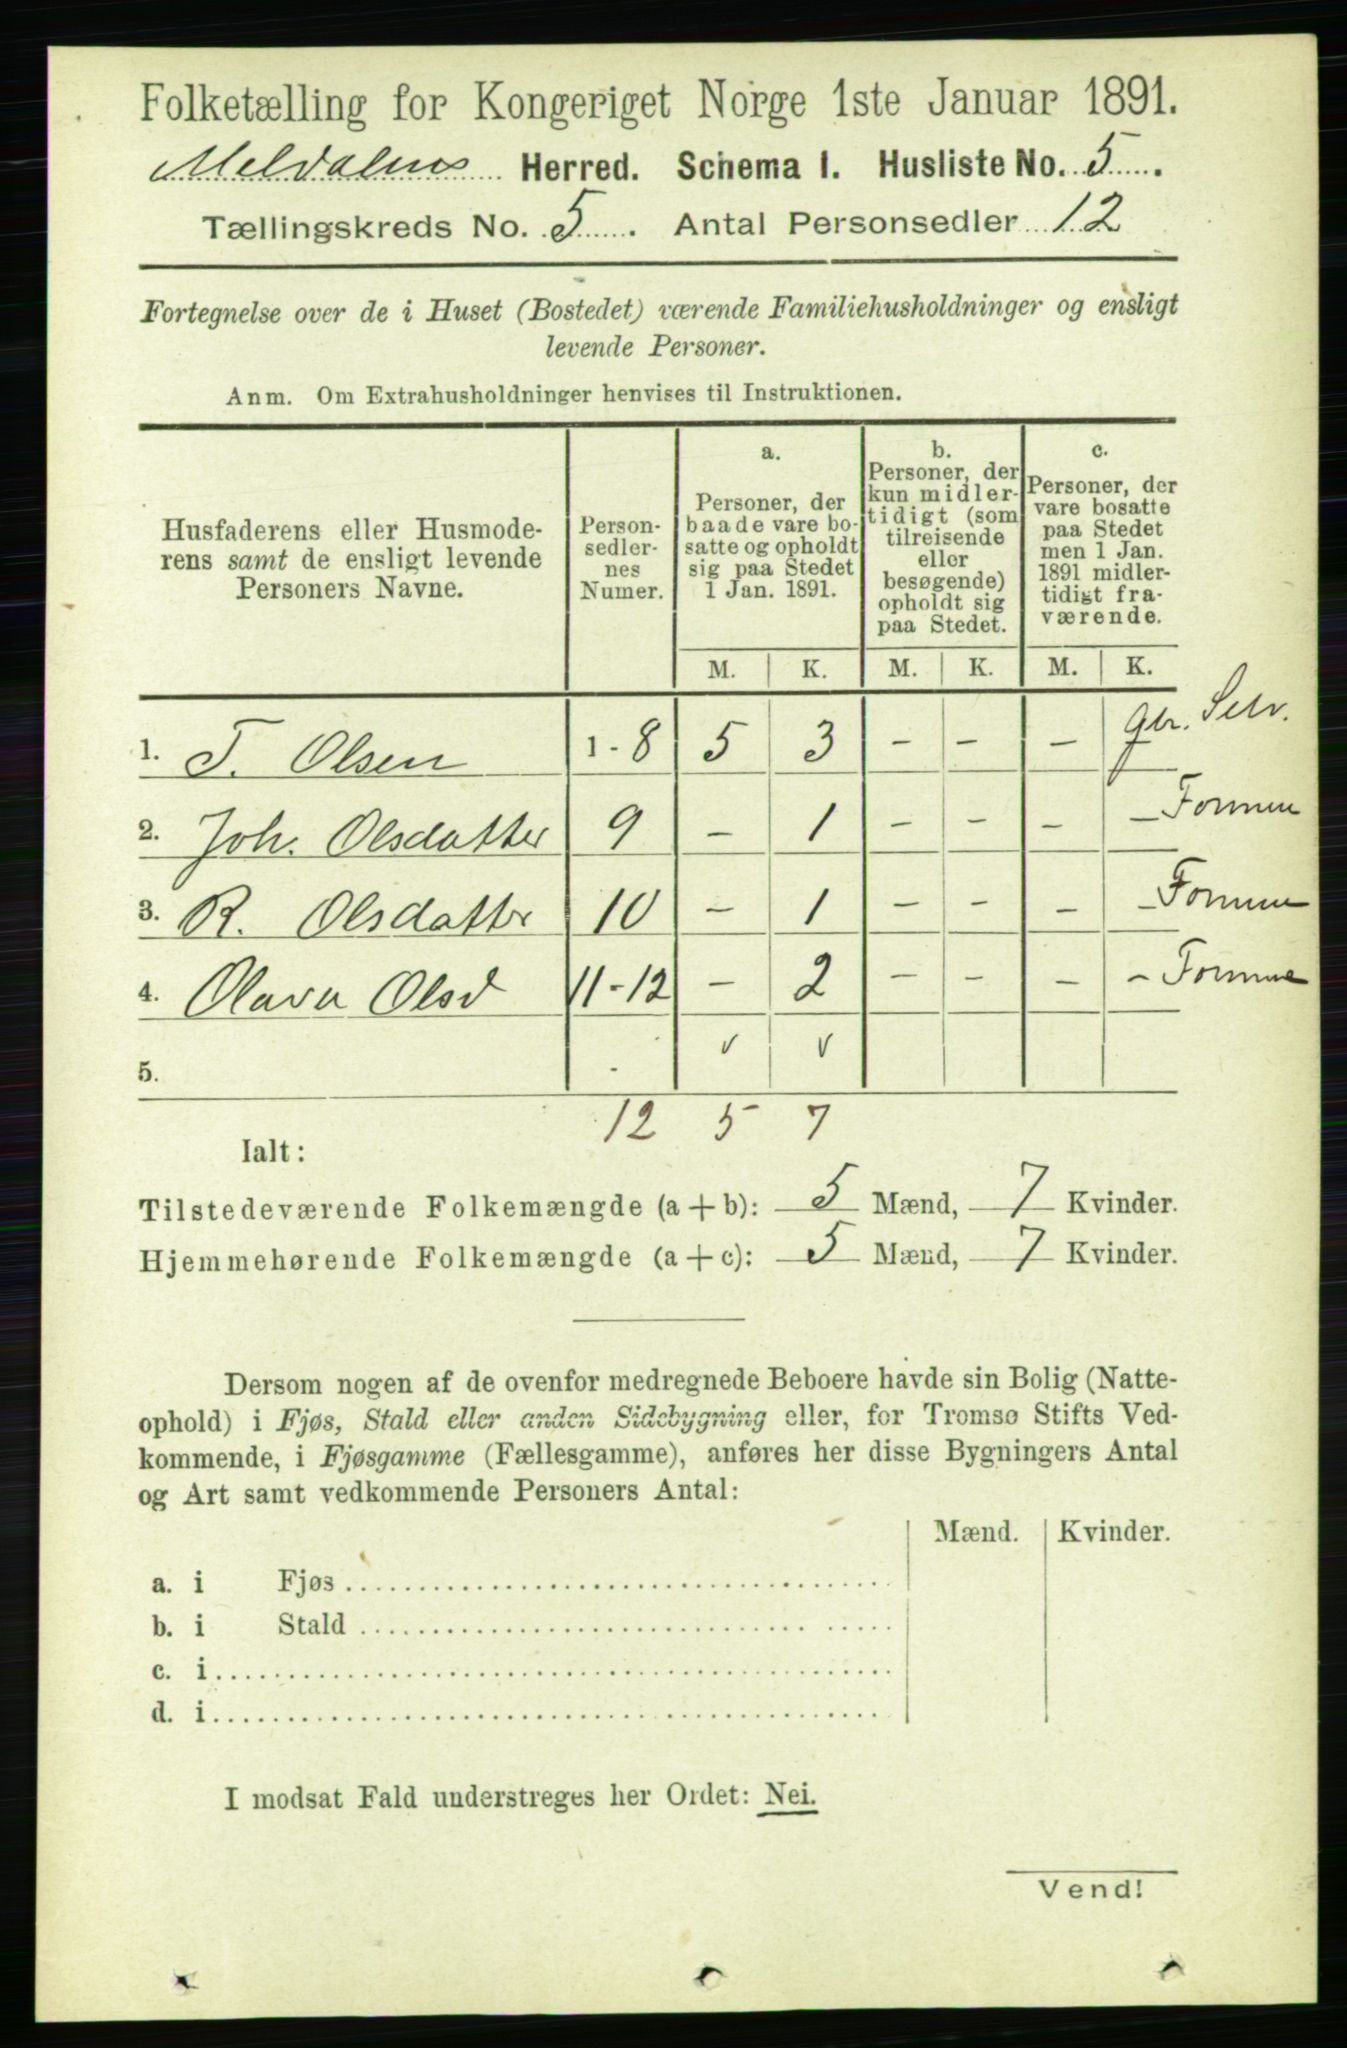 Folketælling for Kongeriget Norge 1ste Januar 1891.
Meldalens Herred. Schema I. Husliste No. 5.
Tællingskreds No. 5. Antal Personsedler 12
Fortegnelse over de i Huset (Bostedet) værende Familiehusholdninger og ensligt
levende Personer.
Anm. Om Extrahusholdninger henvises til Instruktionen.
Husfaderens eller Husmode-
rens samt de ensligt levende
Personers Navne.
Person-
sedler-
nes
Numer.
a.
Personer, der
baade vare bo-
satte og opholdt
sig paa Stedet
1 Jan. 1891.
b.
Personer, der
kun midler-
tidigt (som
tilreisende
eller
besøgende)
opholdt sig
paa Stedet.
c.
Personer, der
vare bosatte
paa Stedet
men 1 Jan.
1891 midler-
tidigt fra-
værende.
M. K. M. K. M. K.
1. T. Olsen 1-8 5 3 - - - gbr. Selv.
2. Joh. Olsdatter 9 - 1 - - - -
3. R. Olsdatter 10 - 1 - - - -
4. Olava Olsd 11-12 - 2 - - - -
5. v v
12 5 7
Ialt:
Tilstedeværende Folkemængde (a + b): 5 Mænd, 7 Kvinder.
Hjemmehørende Folkemængde (a + c): 5 Mænd, 7 Kvinder.
Dersom nogen af de ovenfor medregnede Beboere havde sin Bolig (Natte-
ophold) i Fjøs, Stald eller anden Sidebygning eller, for Tromsø Stifts Ved-
kommende, i Fjøsgamme (Fællesgamme), anføres her disse Bygningers Antal
og Art samt vedkommende Personers Antal:
Mænd. Kvinder.
a. i Fjøs
b. i Stald
c. i
d. i
I modsat Fald understreges her Ordet: Nei.
Vend!